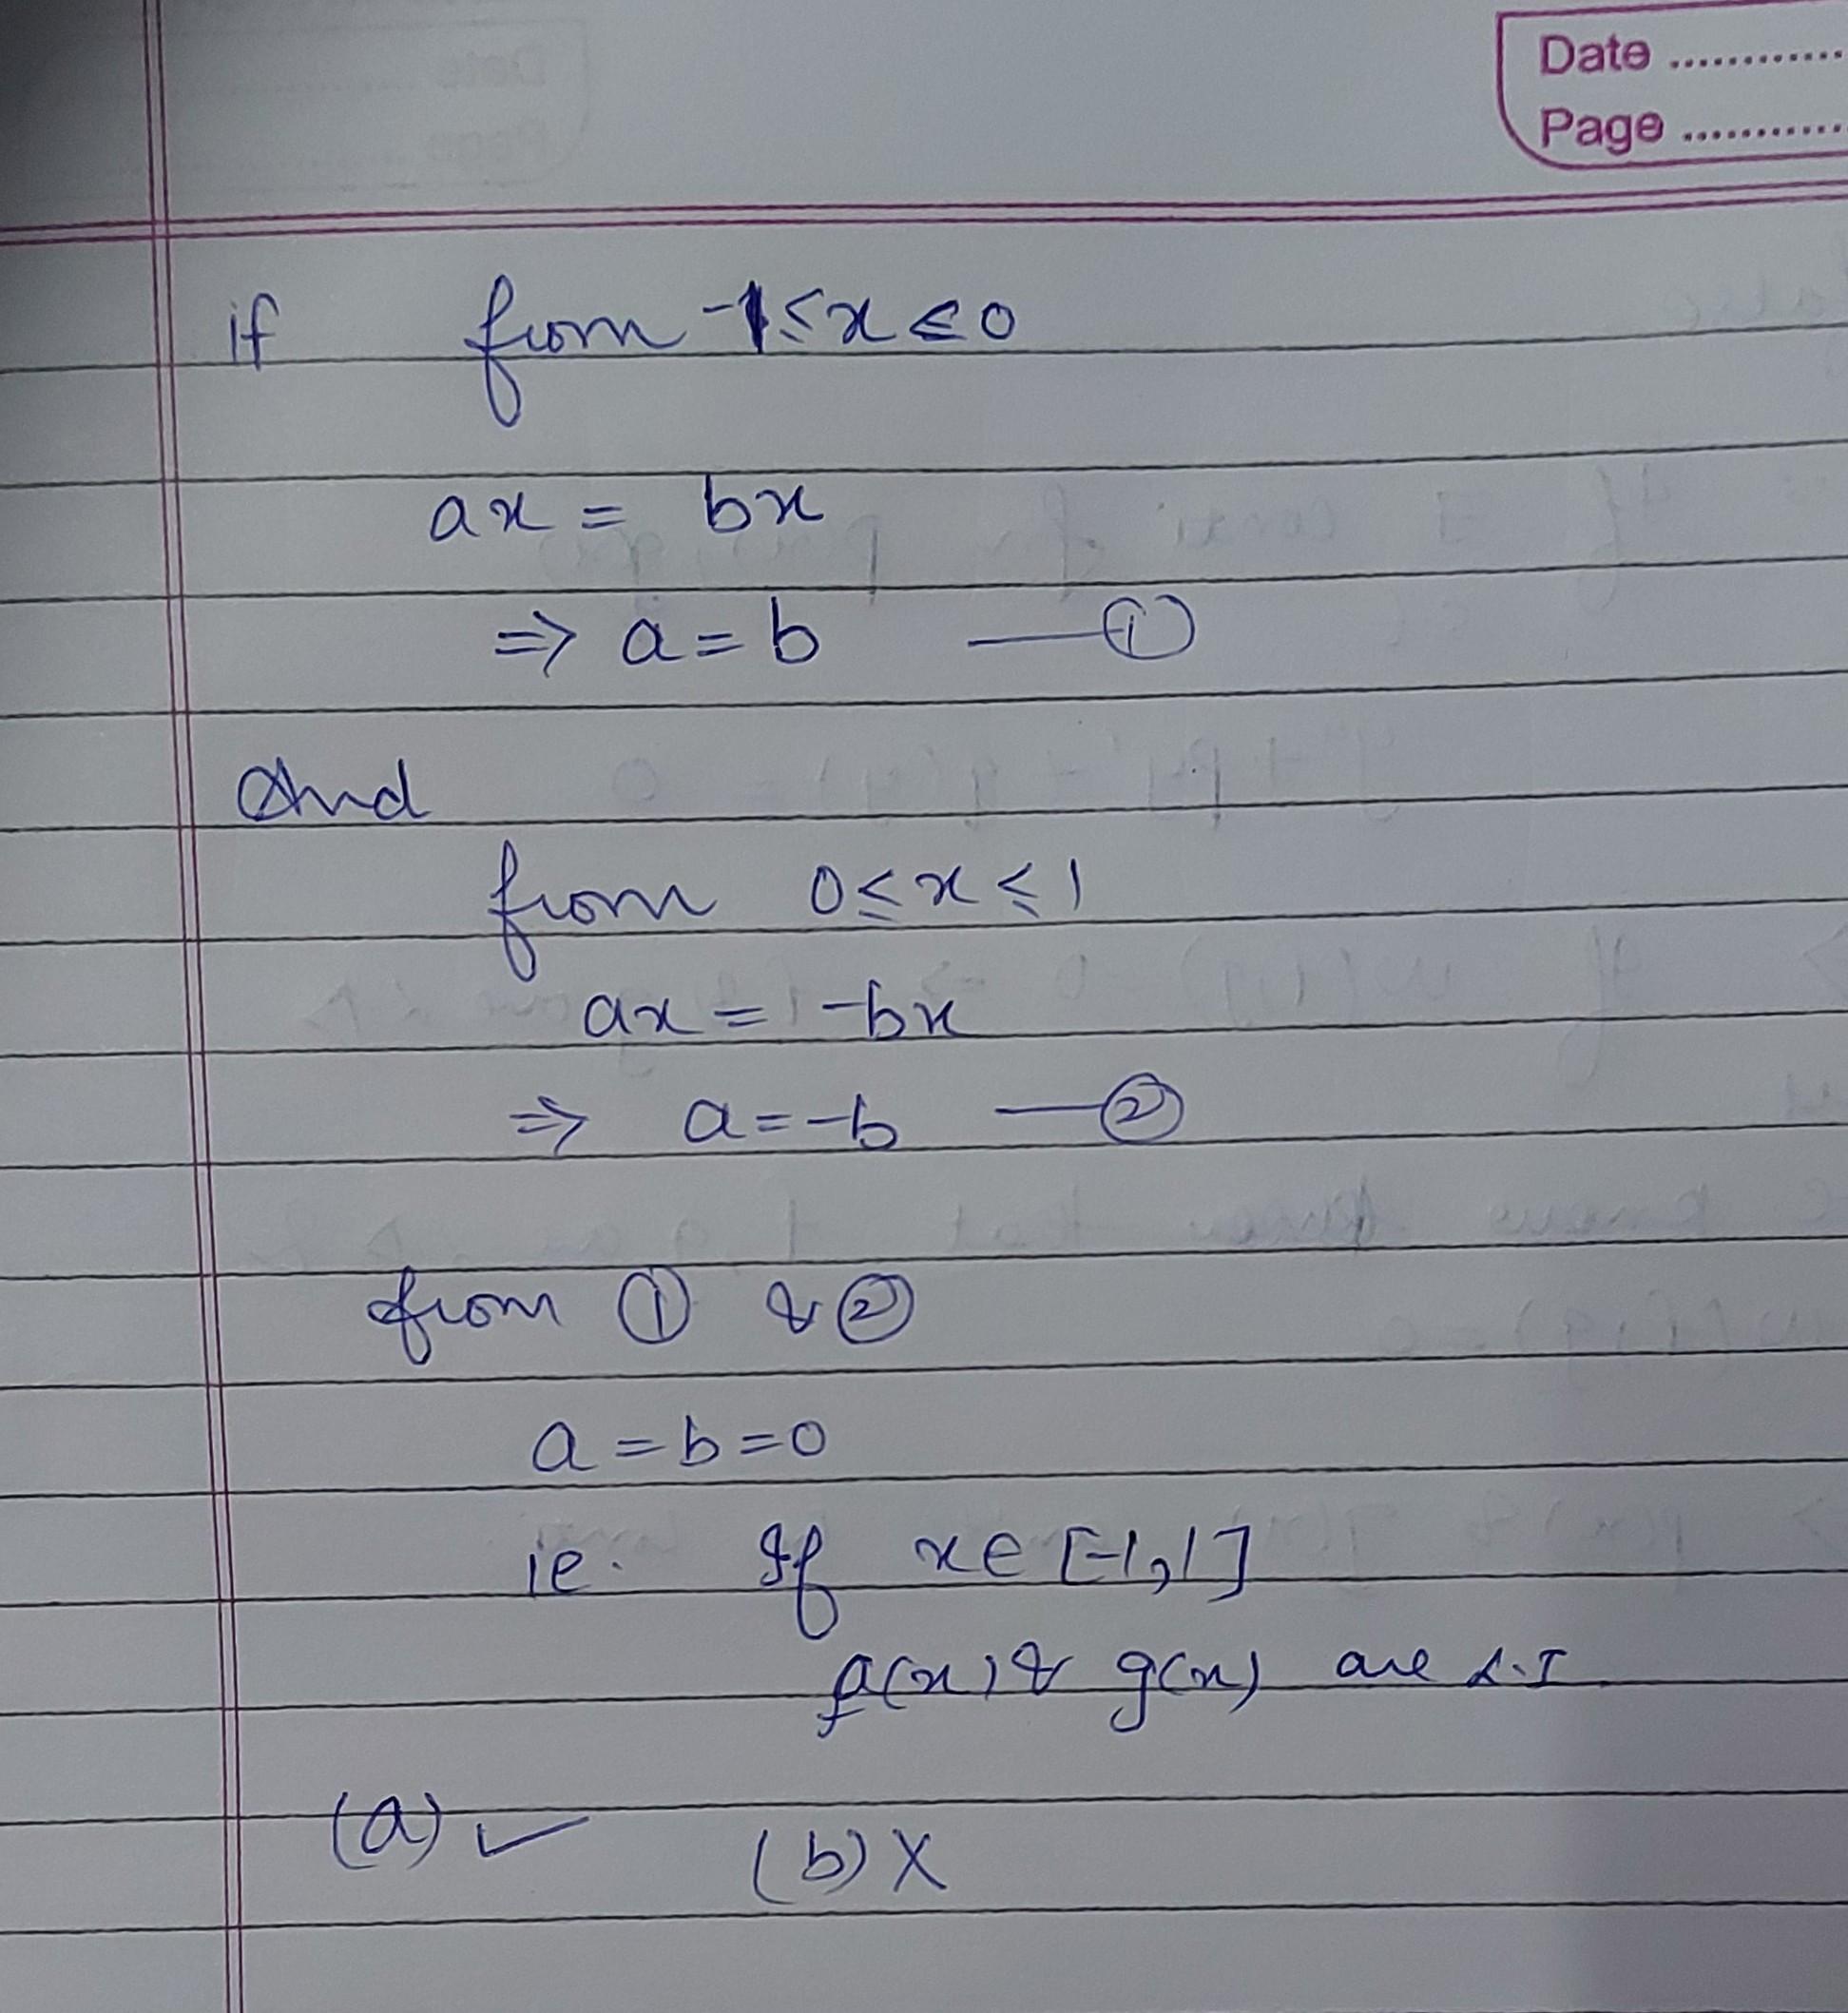 Date ............
Page ............
if from -1≤x≤0
ax = bx
⇒ a=b —①
And
from 0≤x≤1
ax = -bx
⇒ a=-b —②
from ① & ②
a=b=0
ie. If x∈[-1,1]
f(x) & g(x) are L.I
(a)✓ (b)X